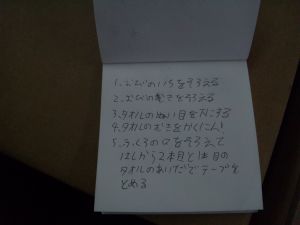 1.おびのいちをそろえる
2.おびの長さをそろえる
3.タオルのぬい目を下にする
4.タオルのむきをかくにん!
5.ふくろの口をそろえて
はしから2本目と1本目の
タオルのあいだでテープを
とめる